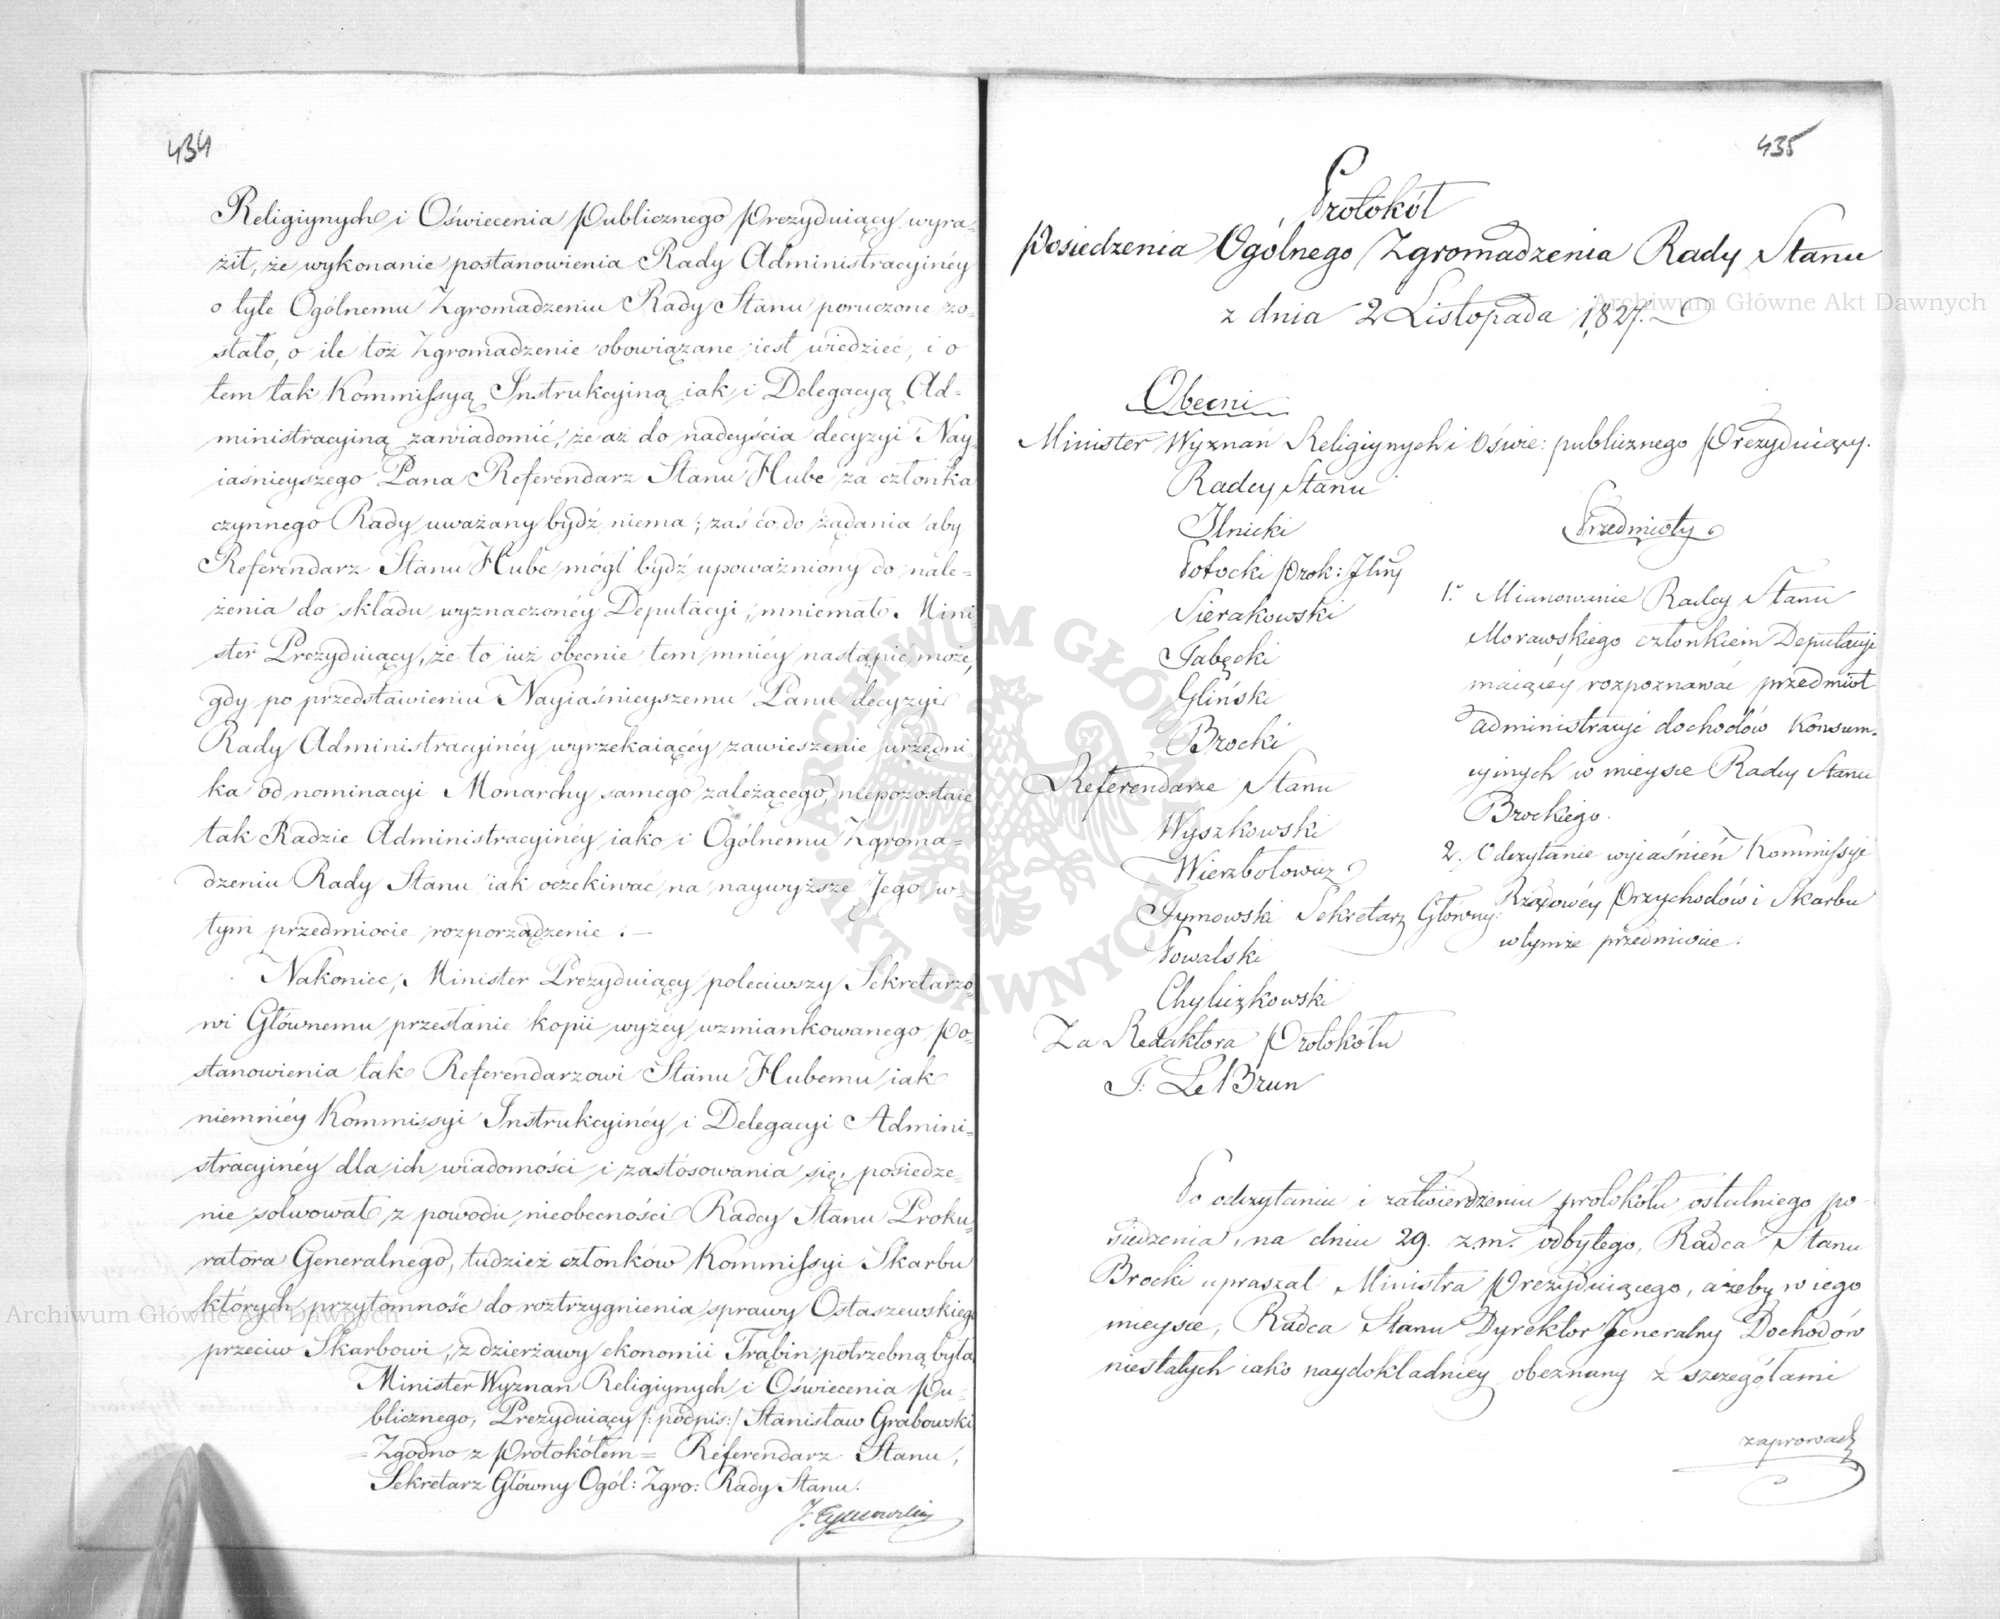 434
Religiynych i Oświecenia Publicznego Prezyduiący wyra-
ził, że wykonanie postanowienia Rady Administracyinéy
o tyle Ogólnemu Zgromadzeniu Rady Stanu poruczone zo-
stało, o ile toż Zgromadzenie obowiązane iest wiedzieć, i o
tem tak Kommissyą Instrukcyiną iak i Delegacyą Ad-
ministracyiną zawiadomić, że aż do nadeyścia decyzyi Nay-
iaśnieyszego Pana Referendarz Stanu Hube za członka
czynnego Rady uważany bydź niema; zaś co do żądania aby
Referendarz Stanu Hube mógł bydź upoważniony do nale-
żenia do składu wyznaczonéy Deputacyi, mniemał Mini-
ster Prezyduiący, że to iuż obecnie tem mniéy nastąpić może,
gdy po przedstawieniu Nayiaśnieyszemu Panu decyzyi
Rady Administracyinéy wyrzekaiącéy zawieszenie urzędni-
ka od nominacyi Monarchy samego zależącego, niepozostaie
tak Radzie Administracyinéy iako i Ogólnemu Zgroma-
dzeniu Rady Stanu iak oczekiwać na naywyższe Jego w
tym przedmiocie rozporządzenie. —
Nakoniec, Minister Prezyduiący poleciwszy Sekretarzo-
wi Głównemu przesłanie kopii wyżéy wzmiankowanego Po-
stanowienia tak Referendarzowi Stanu Hubemu iak
niemniéy Kommissyi Instrukcyinéy i Delegacyi Admini-
stracyinéy dla ich wiadomości i zastósowania się, posiedze-
nie solwował z powodu nieobecności Radcy Stanu Proku-
ratora Generalnego, tudzież członków Kommissyi Skarbu
których przytomność do roztrzygnienia sprawy Ostaszewskiego
przeciw Skarbowi, z dzierżawy ekonomii Trąbin potrzebną była
Minister Wyznań Religiynych i Oświecenia Pu-
blicznego, Prezyduiący /:podpis:/ Stanisław Grabowski
= Zgodno z Protokółem = Referendarz Stanu,
Sekretarz Główny Ogól: Zgro: Rady Stanu.
J. Tymowski
435
Protokół
Posiedzenia Ogólnego Zgromadzenia Rady Stanu
z dnia 2 Listopada 1827.
Obecni
Minister Wyznań Religiynych i Oświe: publicznego Prezyduiący.
Radcy Stanu
Ilnicki
Potocki Prok: Jlny
Sierakowski
Tabęcki
Gliński
Brocki
Referendarze Stanu
Wyszkowski
Wierzbołowicz
Tymowski Sekretarz Główny:
Kowalski
Chyliczkowski
Za Redaktora Protokółu
J: Le Brun
Przedmioty
1. Mianowanie Radcy Stanu
Morawskiego członkiem Deputacyi
maiącey rozpoznawać przedmiot
administracyi dochodów Konsum-
cyinych w mieysce Radcy Stanu
Brockiego.
2. Odczytanie wyiaśnień Kommissyi
Rządowéy Przychodów i Skarbu
w tymże przedmiocie.
Po odczytaniu i zatwierdzeniu protokółu ostatniego po-
siedzenia, na dniu 29. z.m. odbytego, Radca Stanu
Brocki upraszał Ministra Prezyduiącego, ażeby w iego
mieysce, Radca Stanu Dyrektor Jeneralny Dochodów
niestałych iako naydokładniey obeznany z szczegółami
zaprowadz
Archiwum Główne Akt Dawnych
Archiwum Główne Akt Dawnych
ARCHIWUM GŁÓWNE AKT DAWNYCH